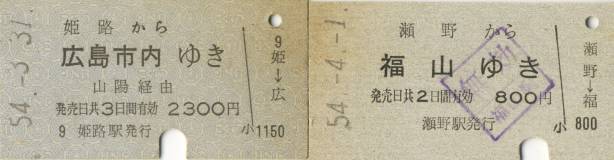 54.-3.31.
姫路から
広島市内 ゆき
山陽経由
発売日共3日間有効 2300円
9 姫路駅発行
9
姫
↓
広
小 1150
54.-4.-1.
瀬野から
福山ゆき
発売日共2日間有効 800円
瀬野駅発行
瀬
野
↓
福
小 800